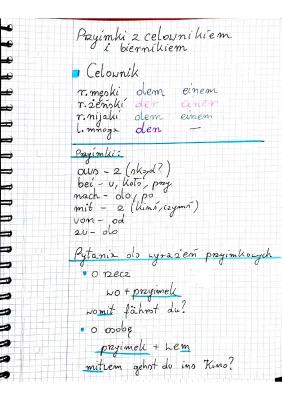 Przyimki z celownikiem
i biernikiem
Celownik
r. męski dem einem
r. żeński der einer
r. nijaki dem einem
l. mnoga den –
Przyimki:
aus - z (skąd?)
bei - u, koło, przy
nach - do, po
mit - z (kimś, czymś)
von - od
zu - do
Pytania do wyrażeń przyimkowych
• o rzecz
wo + przyimek
womit fährst du?
• o osobę
przyimek + wem
mit wem gehst du ins Kino?